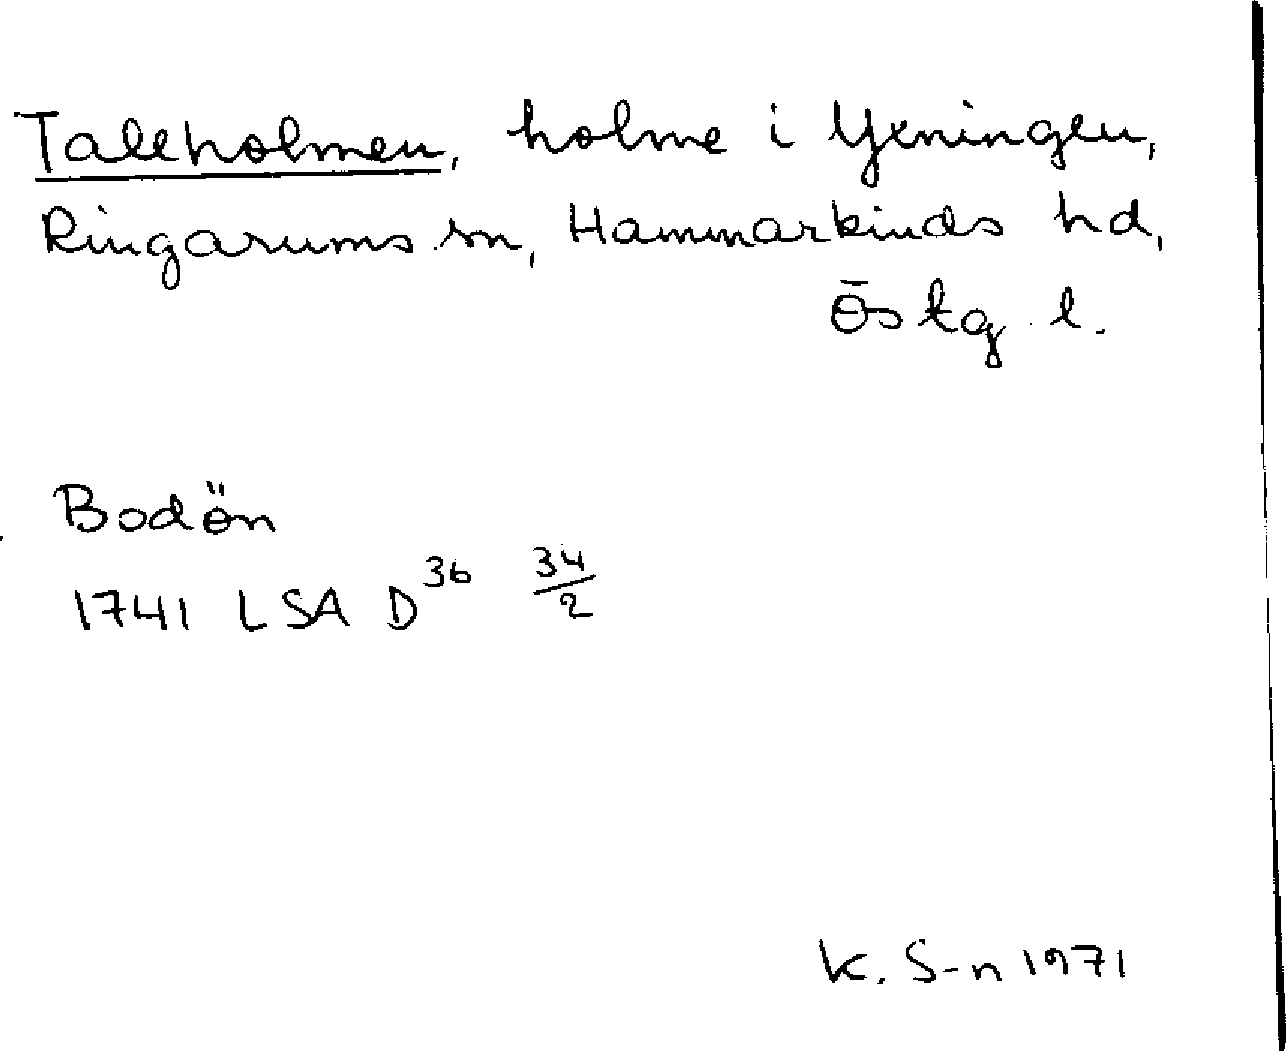 Talleholmen, holme i Yxningen,
Ringarums sn, Hammarkinds hd,
Östg. l.
Bodön
1741 LSA D36 34/2
K. S-n 1971